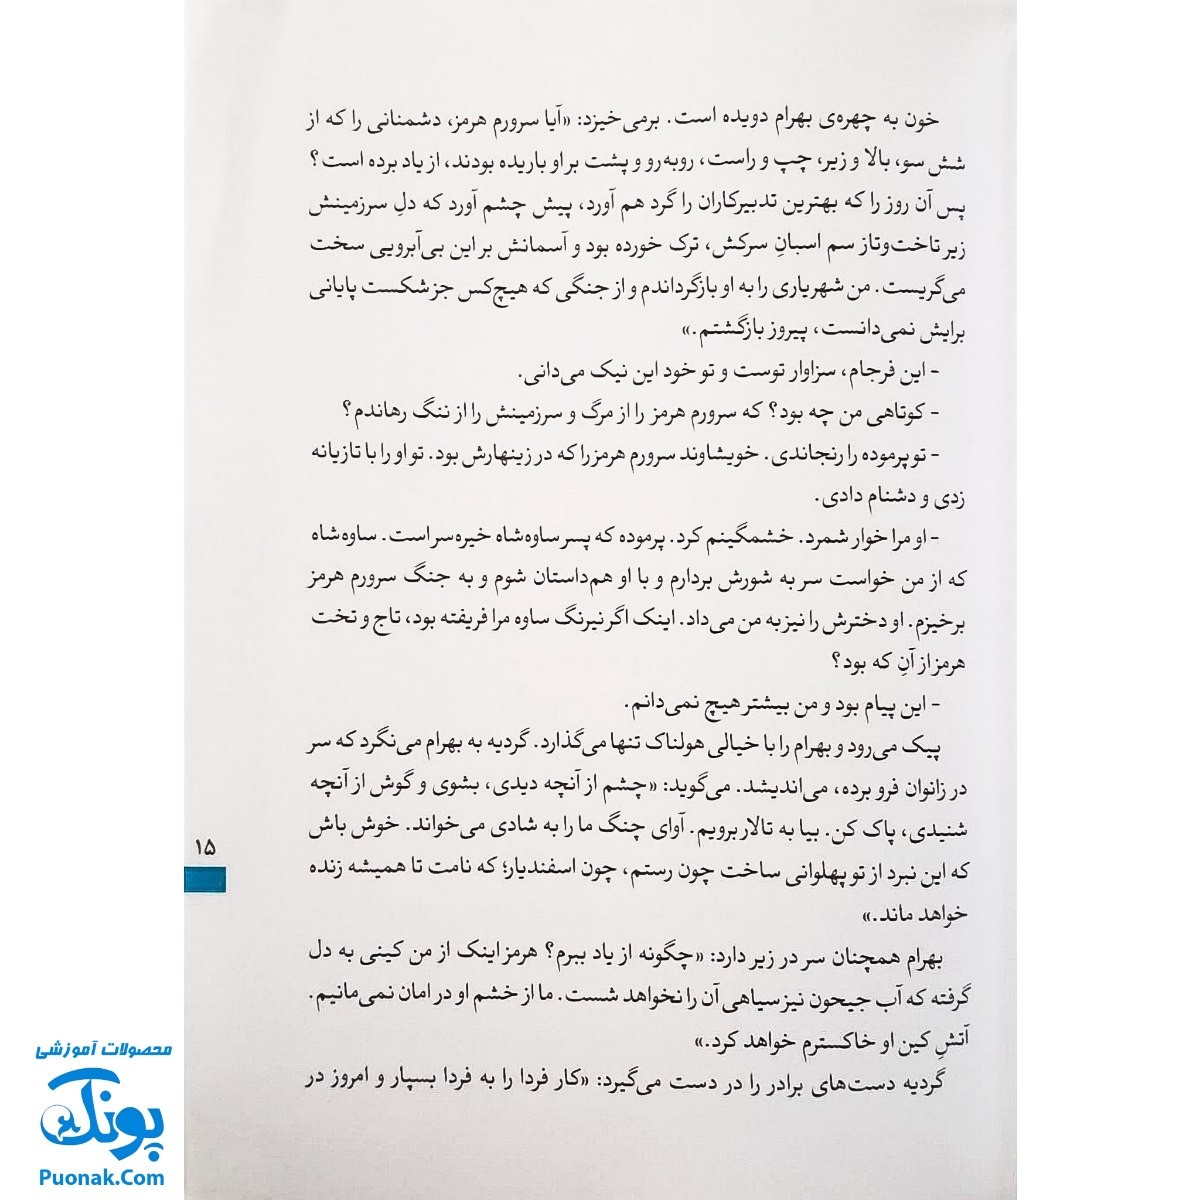 خون به چهره‌ی بهرام دویده است. برمی‌خیزد: «آیا سرورم هرمز، دشمنانی را که از
شش سو، بالا و زیر، چپ و راست، روبه‌رو و پشت بر او باریده بودند، از یاد برده است؟
پس آن روز را که بهترین تدبیرکاران را گرد هم آورد، پیش چشم آورد که دلِ سرزمینش
زیر تاخت‌وتاز سم اسبانِ سرکش، ترک خورده بود و آسمانش بر این بی‌آبرویی سخت
می‌گریست. من شهریاری را به او بازگرداندم و از جنگی که هیچ‌کس جز شکست پایانی
برایش نمی‌دانست، پیروز بازگشتم.»
- این فرجام، سزاوار توست و تو خود این نیک می‌دانی.
- کوتاهی من چه بود؟ که سرورم هرمز را از مرگ و سرزمینش را از ننگ رهاندم؟
- تو پرموده را رنجاندی. خویشاوند سرورم هرمز را که در زینهارش بود. تو او را با تازیانه
زدی و دشنام دادی.
- او مرا خوار شمرد. خشمگینم کرد. پرموده که پسر ساوه‌شاه خیره‌سر است. ساوه‌شاه
که از من خواست سر به شورش بردارم و با او هم‌داستان شوم و به جنگ سرورم هرمز
برخیزم. او دخترش را نیز به من می‌داد. اینک اگر نیرنگ ساوه مرا فریفته بود، تاج و تخت
هرمز از آنِ که بود؟
- این پیام بود و من بیشتر هیچ نمی‌دانم.
پیک می‌رود و بهرام را با خیالی هولناک تنها می‌گذارد. گردیه به بهرام می‌نگرد که سر
در زانوان فرو برده، می‌اندیشد. می‌گوید: «چشم از آنچه دیدی، بشوی و گوش از آنچه
شنیدی، پاک کن. بیا به تالار برویم. آوای چنگ ما را به شادی می‌خواند. خوش باش
که این نبرد از تو پهلوانی ساخت چون رستم، چون اسفندیار؛ که نامت تا همیشه زنده
خواهد ماند.»
بهرام همچنان سر در زیر دارد: «چگونه از یاد ببرم؟ هرمز اینک از من کینی به دل
گرفته که آب جیحون نیز سیاهی آن را نخواهد شست. ما از خشم او در امان نمی‌مانیم.
آتشِ کین او خاکسترم خواهد کرد.»
گردیه دست‌های برادر را در دست می‌گیرد: «کار فردا را به فردا بسپار و امروز در
۱۵
محصولات آموزشی
پونک
Puonak.Com